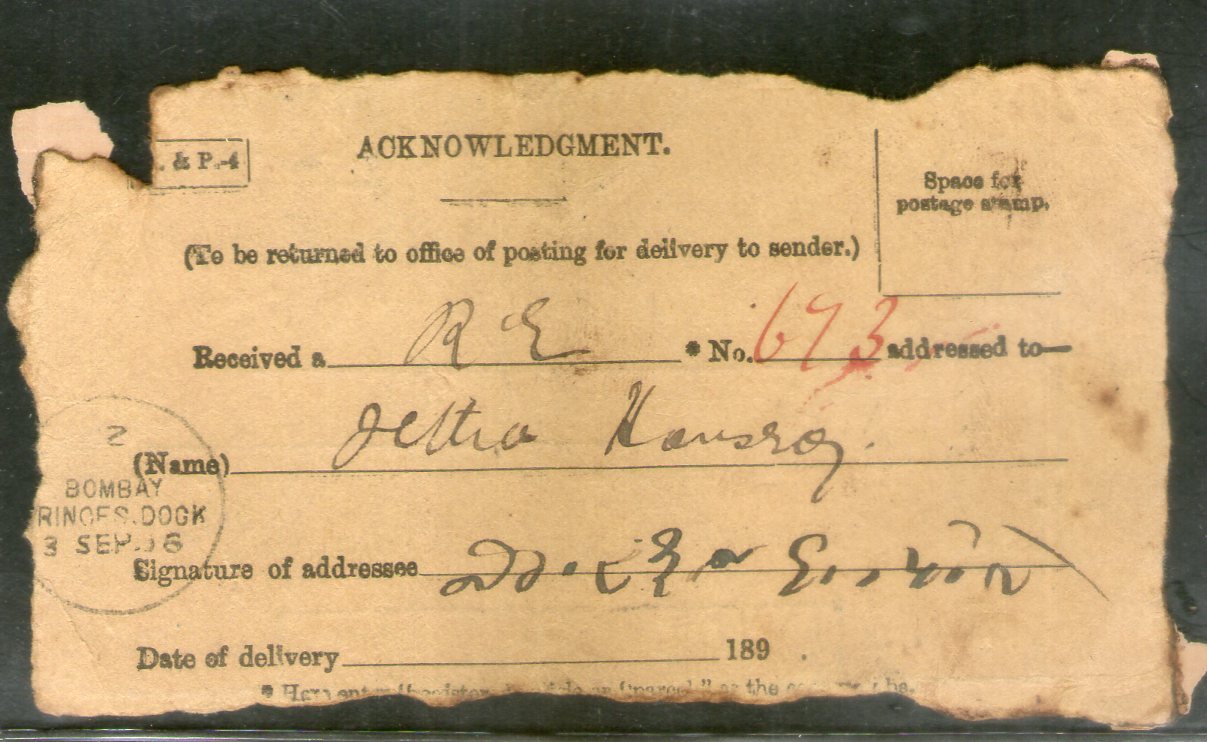 & P.-4
ACKNOWLEDGMENT.
Space for
postage stamp.
(To be returned to office of posting for delivery to sender.)
Received a R E * No. 673 addressed to—
(Name) Jettha Hansraj.
2
BOMBAY
PRINCES.DOCK
3 SEP.96
Signature of addressee
Date of delivery 189 .
* Here enter or "parcel" as the case may be.